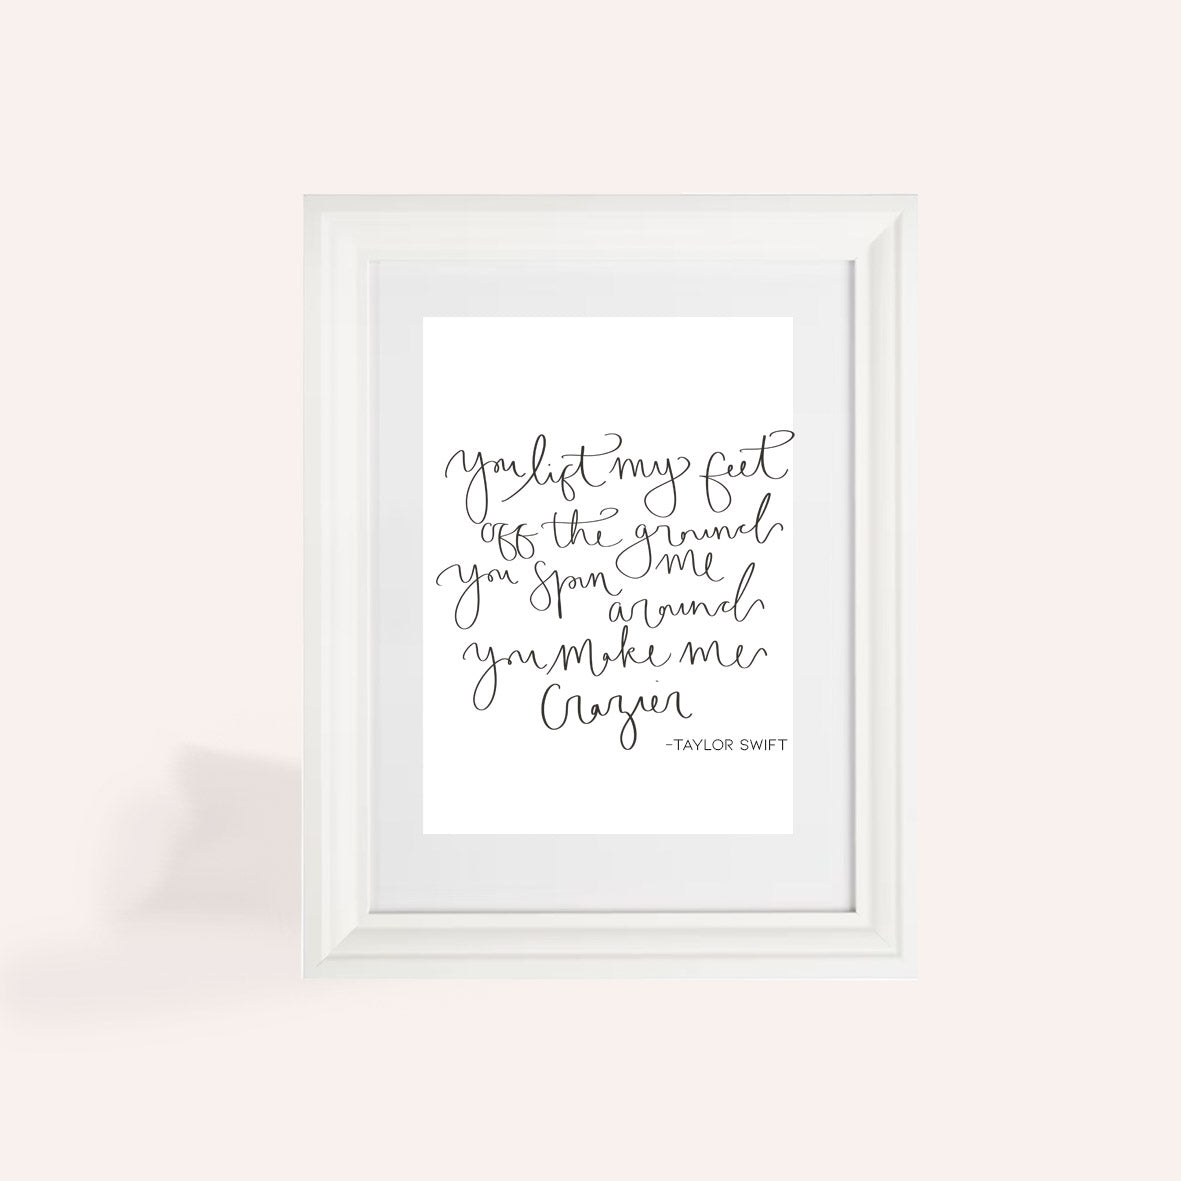 you lift my feet
off the ground
you spin me
around
you make me
Crazier
-TAYLOR SWIFT